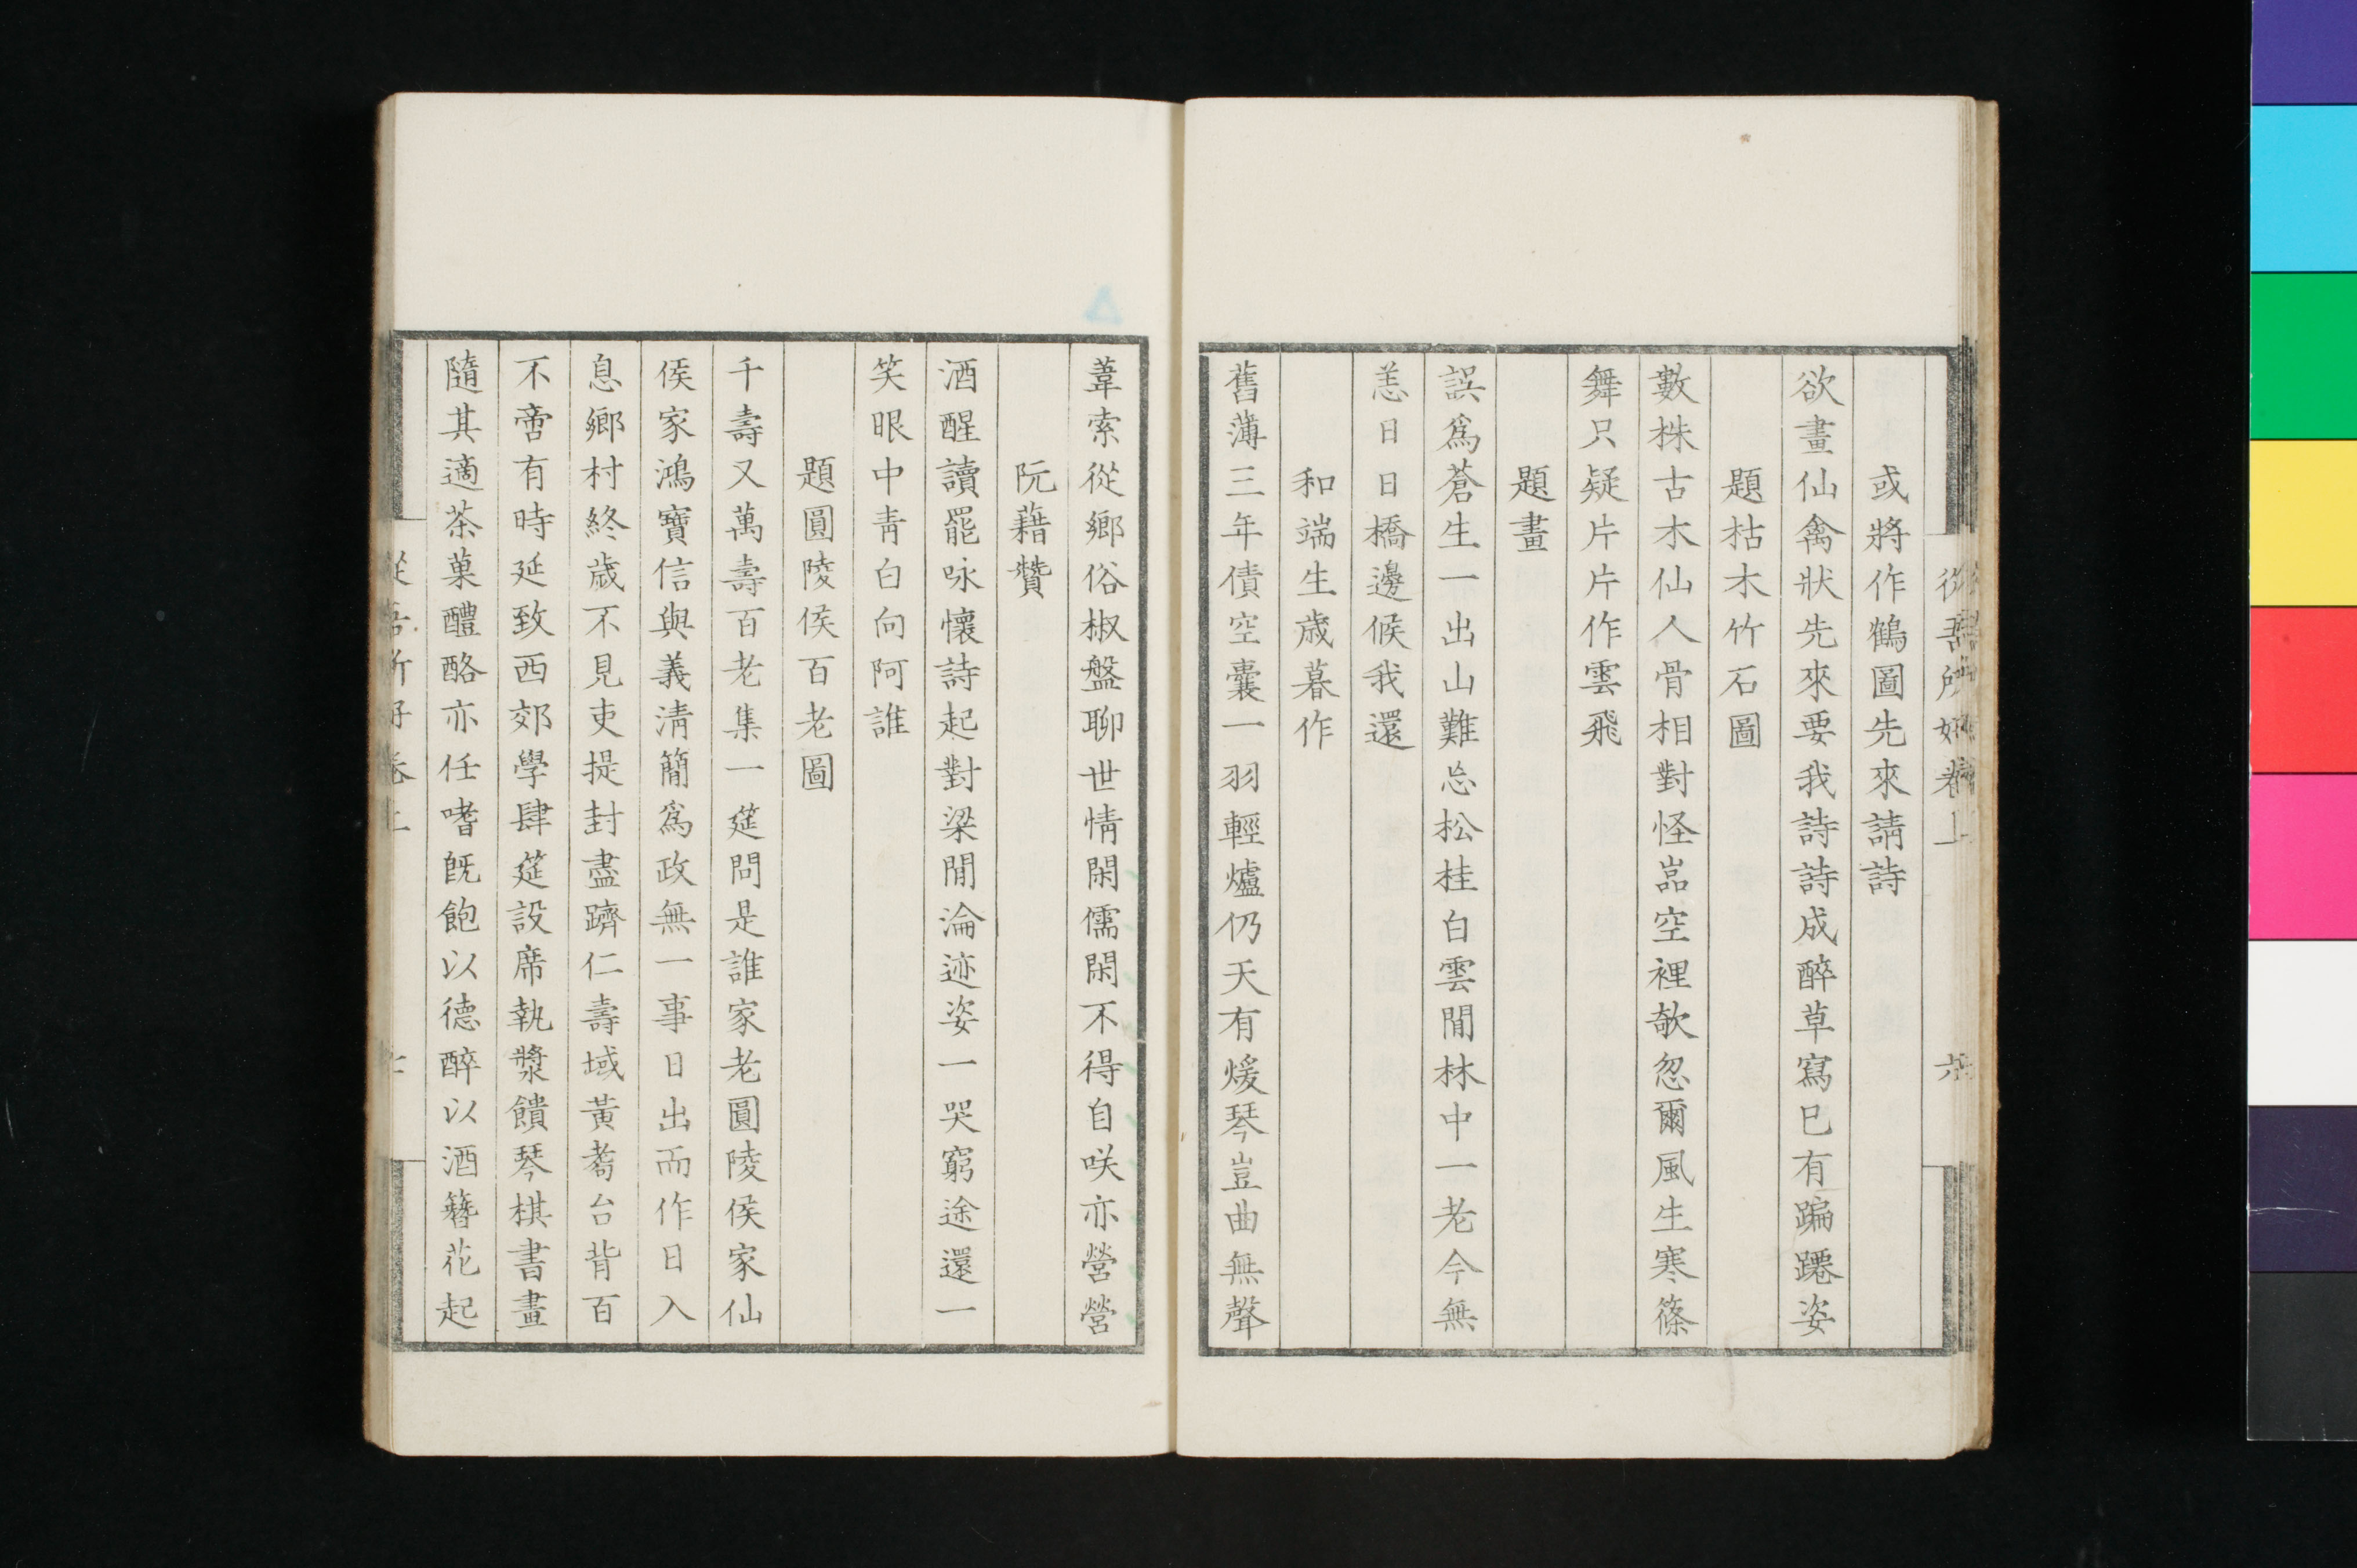 從吾所好卷上
六
或將作鶴圖先來請詩
欲畫仙禽狀先來要我詩詩成醉草寫巳有蹁躚姿
題枯木竹石圖
數株古木仙人骨相對怪嵓空裡欹忽爾風生寒篠
舞只疑片片作雲飛
題畫
誤爲蒼生一出山難忘松桂白雲閒林中一老今無
恙日日橋邊候我還
和端生歲暮作
舊薄三年債空囊一羽輕爐仍天有煖琴豈曲無聲
葦索從鄉俗椒盤聊世情閑儒閑不得自咲亦營營
阮藉贊
酒醒讀罷咏懷詩起對梁閒淪迹姿一哭窮途還一
笑眼中靑白向阿誰
題圓陵侯百老圖
千壽又萬壽百老集一筵問是誰家老圓陵侯家仙
侯家鴻寶信與義淸簡爲政無一事日出而作日入
息鄉村終歲不見吏提封盡躋仁壽域黃耈台背百
不啻有時延致西郊學肆筵設席執漿饋琴棋書畫
隨其適茶菓醴酪亦任嗜旣飽以德醉以酒簪花起
從吾所好卷上